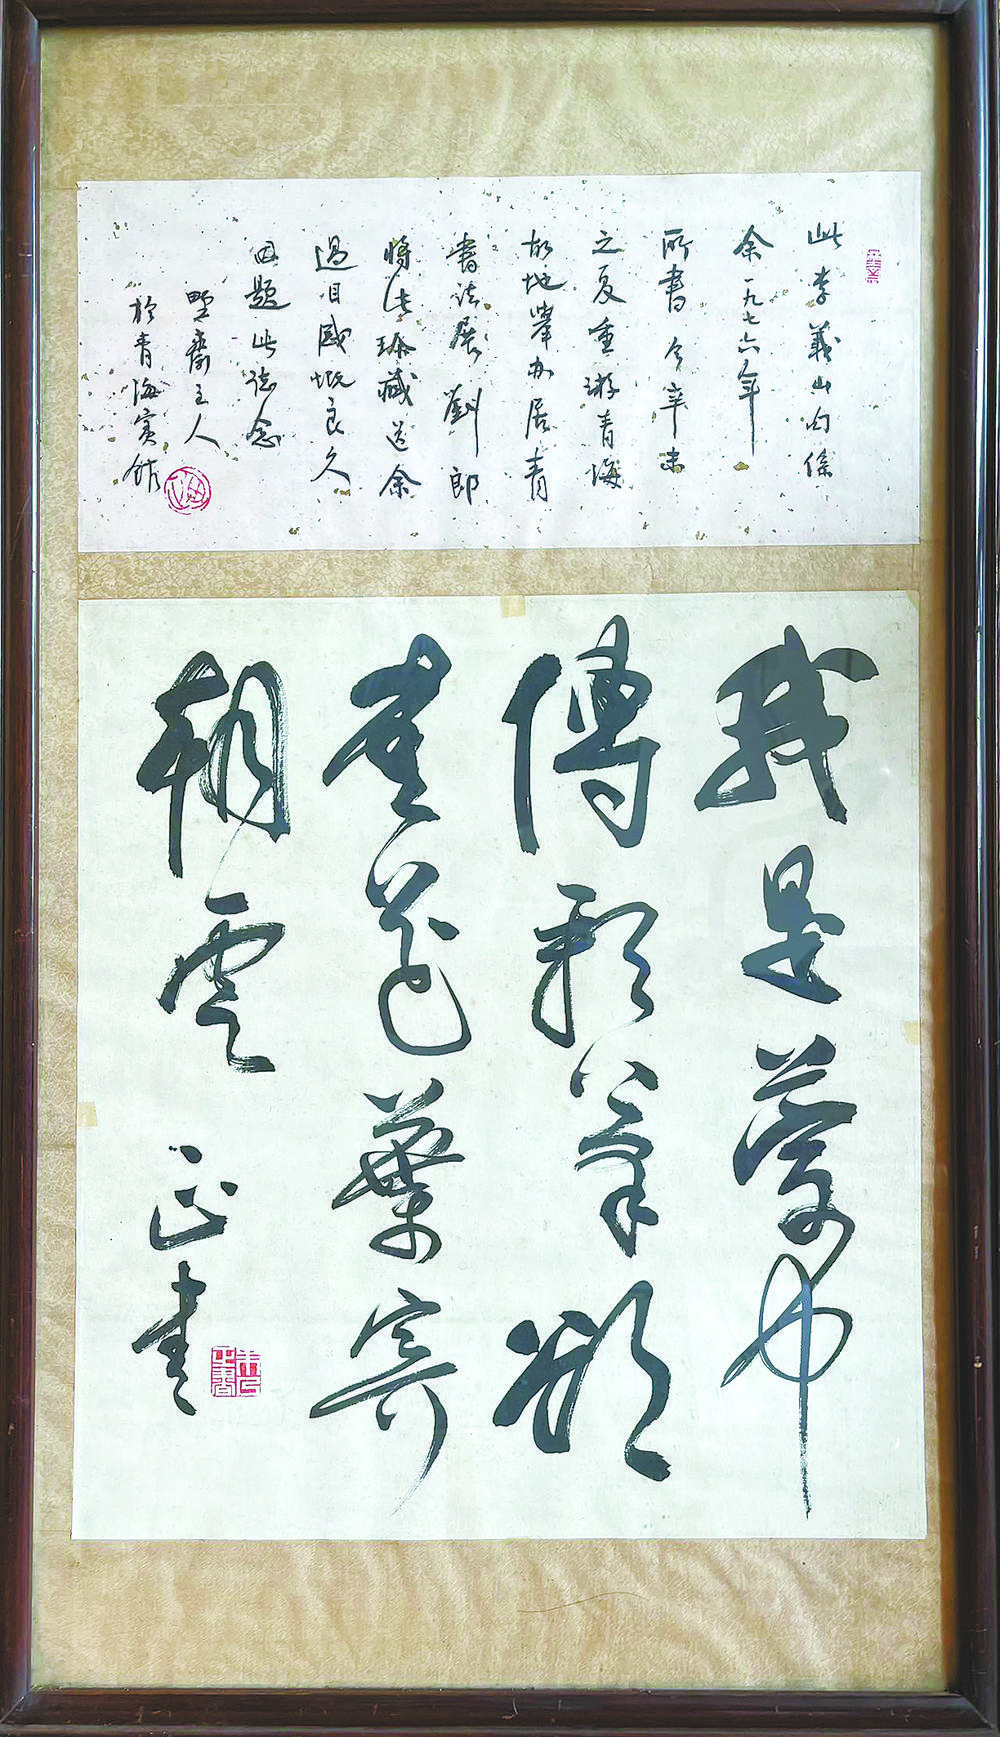 此李義山句係
余一九七六年
所書今辛未
之夏重游青海
故地舉办居青
書法展劉郎
將此珍藏送余
過目感慨良久
因題此誌念
野齋主人
於青海賓館
我是夢中
傳彩筆欲
書花葉寄
朝雲 正書